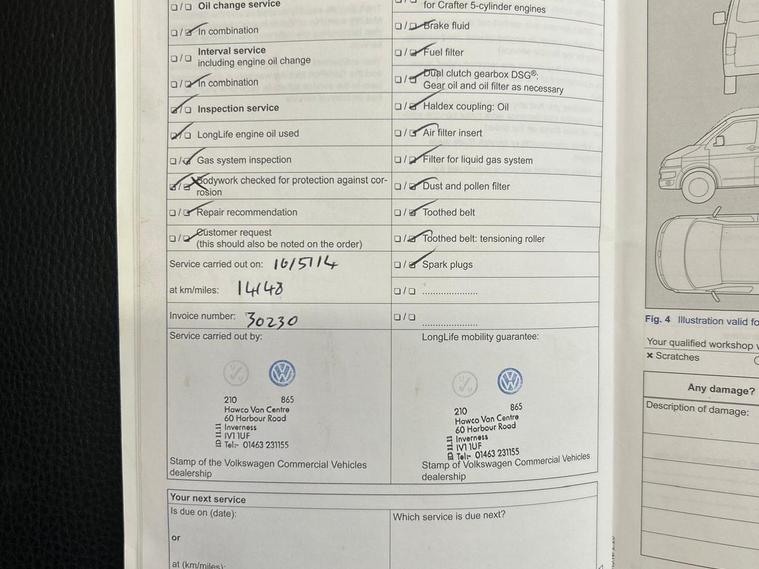 Oil change service
In combination
Interval service
including engine oil change
In combination
Inspection service
LongLife engine oil used
Gas system inspection
Bodywork checked for protection against cor-
rosion
Repair recommendation
Customer request
(this should also be noted on the order)
Service carried out on: 16/5/14
at km/miles: 14148
Invoice number: 30230
Service carried out by:
210 865
Hawco Van Centre
60 Harbour Road
Inverness
IV1 1UF
Tel:- 01463 231155
Stamp of the Volkswagen Commercial Vehicles
dealership
Your next service
Is due on (date):
or
at (km/miles):
for Crafter 5-cylinder engines
Brake fluid
Fuel filter
Dual clutch gearbox DSG®:
Gear oil and oil filter as necessary
Haldex coupling: Oil
Air filter insert
Filter for liquid gas system
Dust and pollen filter
Toothed belt
Toothed belt: tensioning roller
Spark plugs
LongLife mobility guarantee:
210 865
Hawco Van Centre
60 Harbour Road
Inverness
IV1 1UF
Tel:- 01463 231155
Stamp of Volkswagen Commercial Vehicles
dealership
Which service is due next?
Fig. 4 Illustration valid fo
Your qualified workshop
× Scratches
Any damage?
Description of damage: